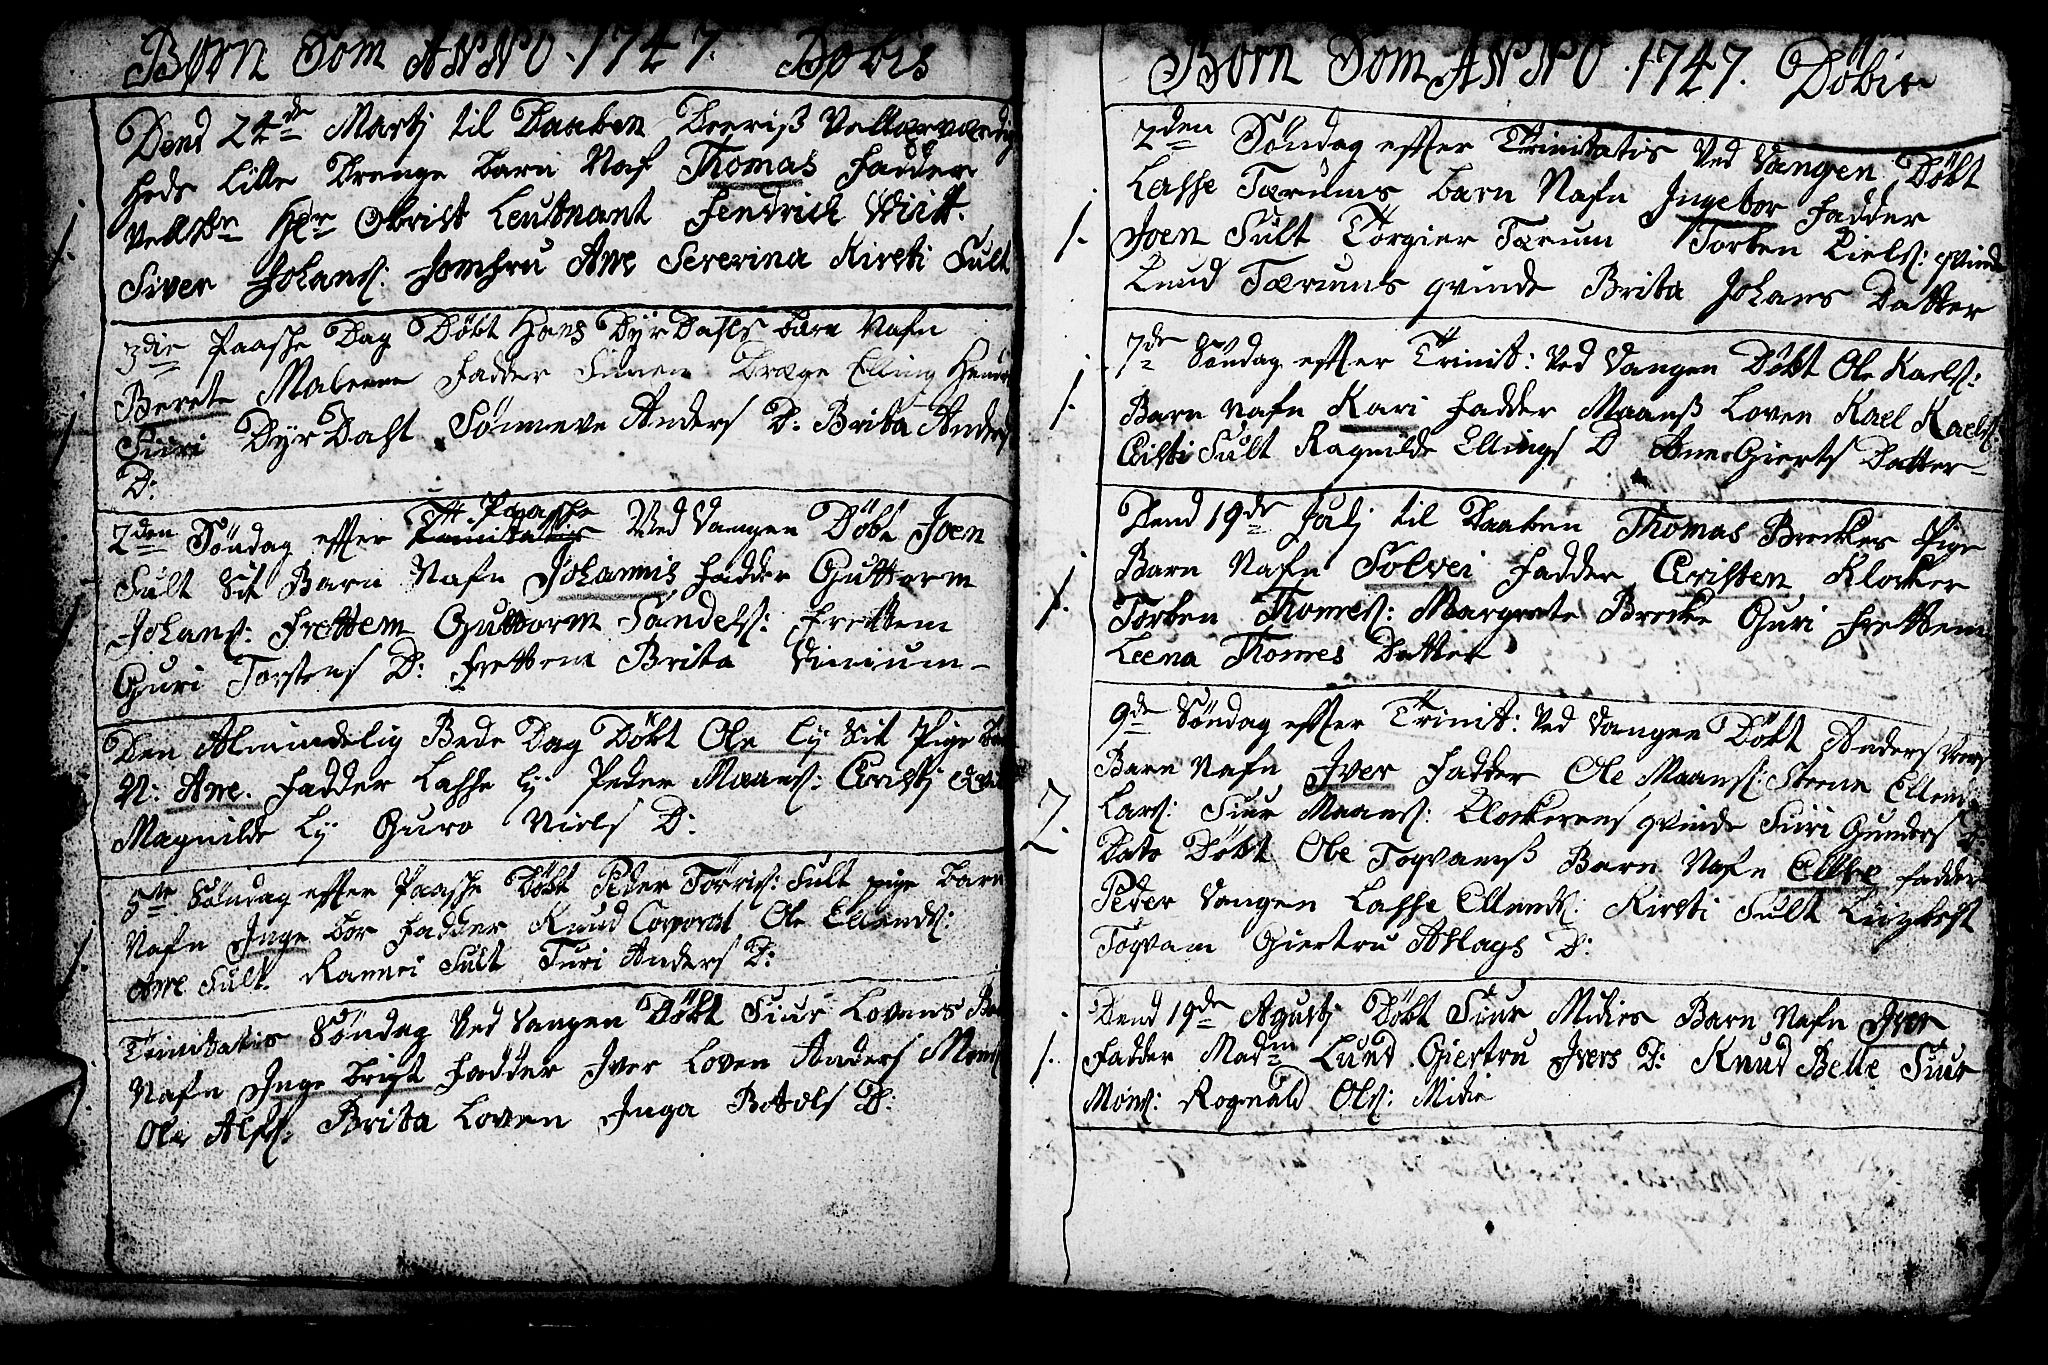 Børn Som ANNO .1747. Døbis
Dend 24de Martj til Daaben Deeriß Vellærværdig
heds lille Drenge barn Nafn Thomas Fadder
Hr Obrist Leutnant Fendrich Witt.
Siver Johans: Jomfru Ane Sererina Kirsti Sult
1.
3die Paasche Dag Døbt Hans Dyrdahls barn Nafn
Beret Maleene Fadder Simen Bræge Elling
Siuri DyrDahl Sønneve Anders D: Brita Anders
D:
2den Søndag efter Trinitatis Paasche Ved Vangen Døbt Joen
Sult Sit Barn Nafn Johannis Fadder Guttorm
Johans: Frettem Guttorm Sandels: Frettem
Guri Torstens D: Frettem Brita Vinium
Den Almindelig Bede Dag Døbt Ole Ly Sit Pige
N: Ane. Fadder Lasse Ly Peder Maans: Cristj
Magnilde Ly Guro Niels D:
5te Søndag efter Paasche Døbt Peder Torris: Sult pige barn
Nafn Inge bor Fadder Knud Corporal Ole Ellends:
Ane Sult Rannei Sult Turi Anders D:
1.
Trinitatis Søndag Ved Vangen Døbt Siur Lovens
Nafn Inge brigt Fadder Iver Loven Anders Mons
Ole Alfs: Brita Loven Inga Botols D:
1.
Børn Som ANNO .1747. Døbis
2den Søndag efter Trinitatis Ved Vangen Døbt
Lasse Tærums barn Nafn Ingebor Fadder
Joen Sult Torgier Tærum Torben Niels: qvinde
Knud Tærums qvinde Brita Johans Datter
1.
7de Søndag efter Trinit: Ved Vangen Døbt Ole Karls:
Barn Nafn Kari Fadder Maanß Loven Kael Kaels:
Cisti Sult Ragnilde Ellings D Ane Gierts Datter
1.
Dend 19de Julj til Daaben Thomas Breckes Pige
Barn Nafn Solvei Fadder Cristen Klocker
Torben Thomes: Margrete Brecke Guri Frettem
Leena Thomes Datter
1.
9de Søndag efter Trinit: Ved Vangen Døbt Anders
Barn Nafn Iver Fadder Ole Maans: Steene Ellend
Lars: Siur Maans: Klockerens qvinde Siuri Gunders D:
2.
Dato Døbt Ole Toqvamß Barn Nafn Fadder
Peder Vangen Lasse Ellends: Kirsti Sult
Toqvam Giertru Aslags D:
Dend 19de Agustj Døbt Siur Midies Barn Nafn Iver
Fadder Madm Lund Giertru Ivers D: Knud Belle Siur
Mons: Rognald Ols: Midie
1.